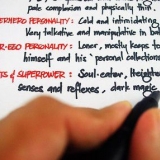 pale complexion and physically
ERHERO PERSONALITY: Cold and intimidating
Very talkative and manipulative in bat
ER-EGO PERSONALITY: Loner, mostly keeps to
himself and his 'personal collections
OF SUPERPOWER: Soul-eater, Heighte
senses and reflexes, dark magic